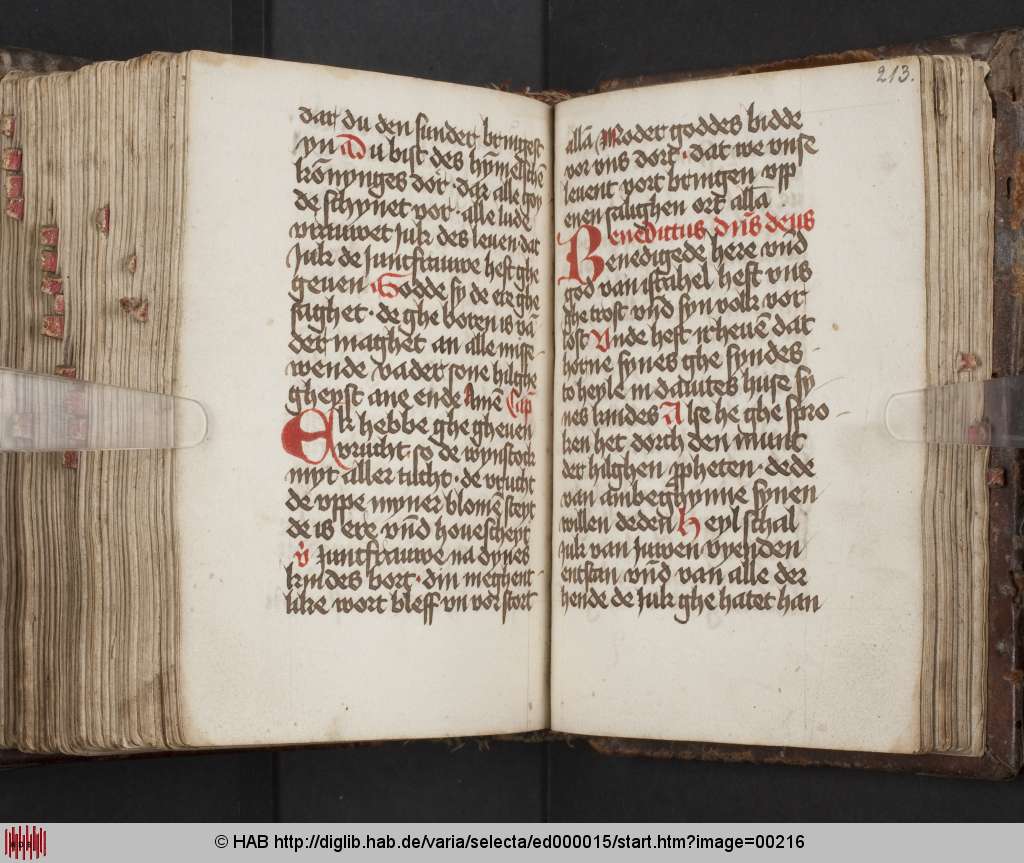 dat du den sunder bringest
yn Du bist des hymelschē
kōnynges dor · dar alle goy
de schynet vor · alle lude
vrauwet juk des leuen · dat
Juk de junkfrauwe heft ghe
geuen · Godde sy de ere ghe
sighet · de ghe boren is vā
der maghet an alle mise
wende vader sone hilghe
gheyst ane ende Amē Cap̄
Ek hebbe ghe gheuen
vrucht · so de wynstock
myt aller tucht · de vrucht
de vppe myner blomē steyt
de is ere vn̄d houescheyt
v̊ Juntfrauwe na dynes
kindes bort · din meghent
like wort bleff vn vorstort
213.
allā Moder goddes bidde
vor vns dort · dat we vnse
leuent vort bringen vpp
enen salighen ort allā
Benedictus dn̄s deus
Benedigede here vn̄d
god van israhel heft vns
ghe trost vn̄d syn volk vor
lost Unde heft irheuē dat
horne synes ghe syndes
to heyle in dauites huse sy
nes kindes Alse he ghe spro
ken het dorch den munt
der hilghen ꝓpheten · dede
van ambeghynne synen
willen deden Heyl schal
juk van juwen vyenden
entstan vn̄d van alle der
hende de juk ghe hatet han
© HAB http://diglib.hab.de/varia/selecta/ed000015/start.htm?image=00216